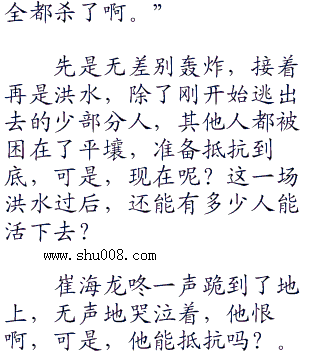 全都杀了啊。”
先是无差别轰炸，接着
再是洪水，除了刚开始逃出
去的少部分人，其他人都被
困在了平壤，准备抵抗到
底，可是，现在呢？这一场
洪水过后，还能有多少人能
活下去？
www.shu008.com
崔海龙咚一声跪到了地
上，无声地哭泣着，他恨
啊，可是，他能抵抗吗？。